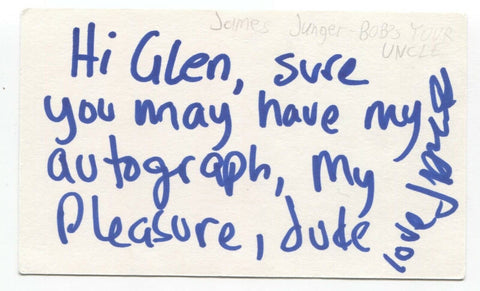 James Junger - BOB'S YOUR
UNCLE
Hi Glen, sure
you may have my
autograph, My
Pleasure, dude
love,